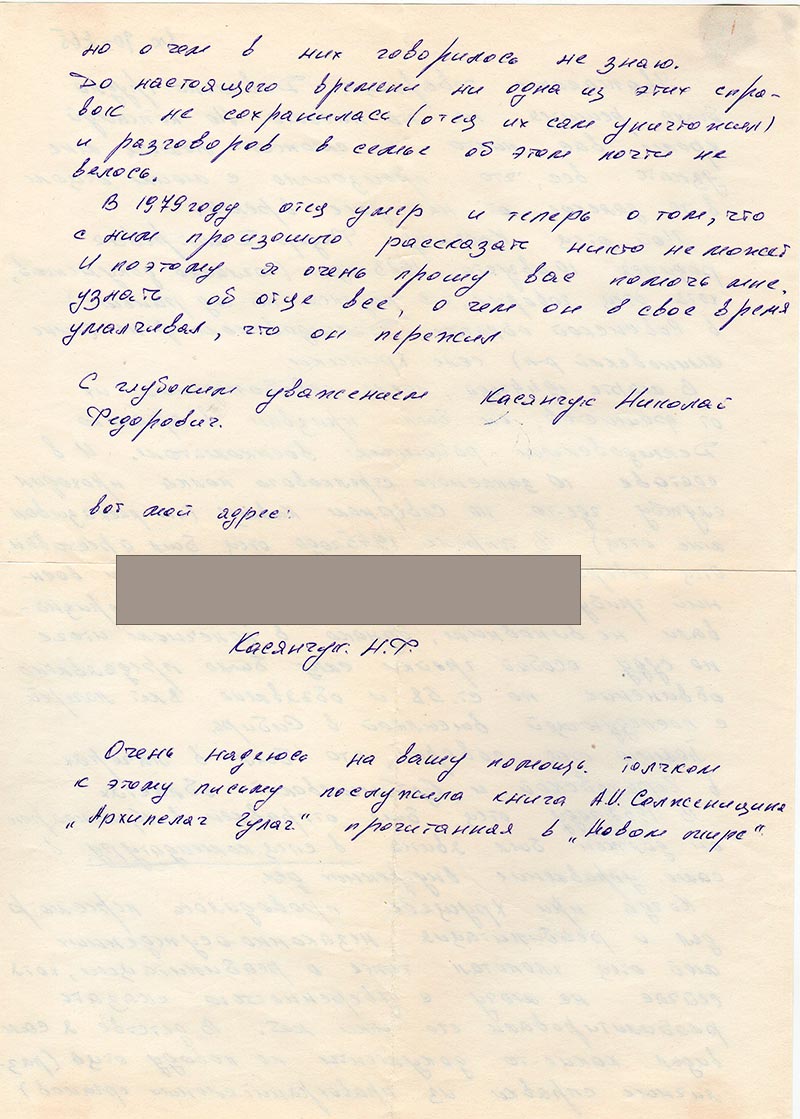 но о чем в них говорилось не знаю.
До настоящего времени ни одна из этих спра-
вок не сохранилась (отец их сам уничтожил)
и разговоров в семье об этом почти не
велось.
В 1979 году отец умер и теперь о том, что
с ним произошло рассказать никто не может
И поэтому я очень прошу вас помочь мне,
узнать об отце все, о чем он в свое время
умалчивал, что он пережил
С глубоким уважением Касянчук Николай
Федорович.
вот мой адрес:
Касянчук. Н.Ф.
Очень надеюсь на вашу помощь. Толчком
к этому письму послужила книга А.И. Солженицина
„Архипелаг Гулаг" прочитанная в „Новом мире".